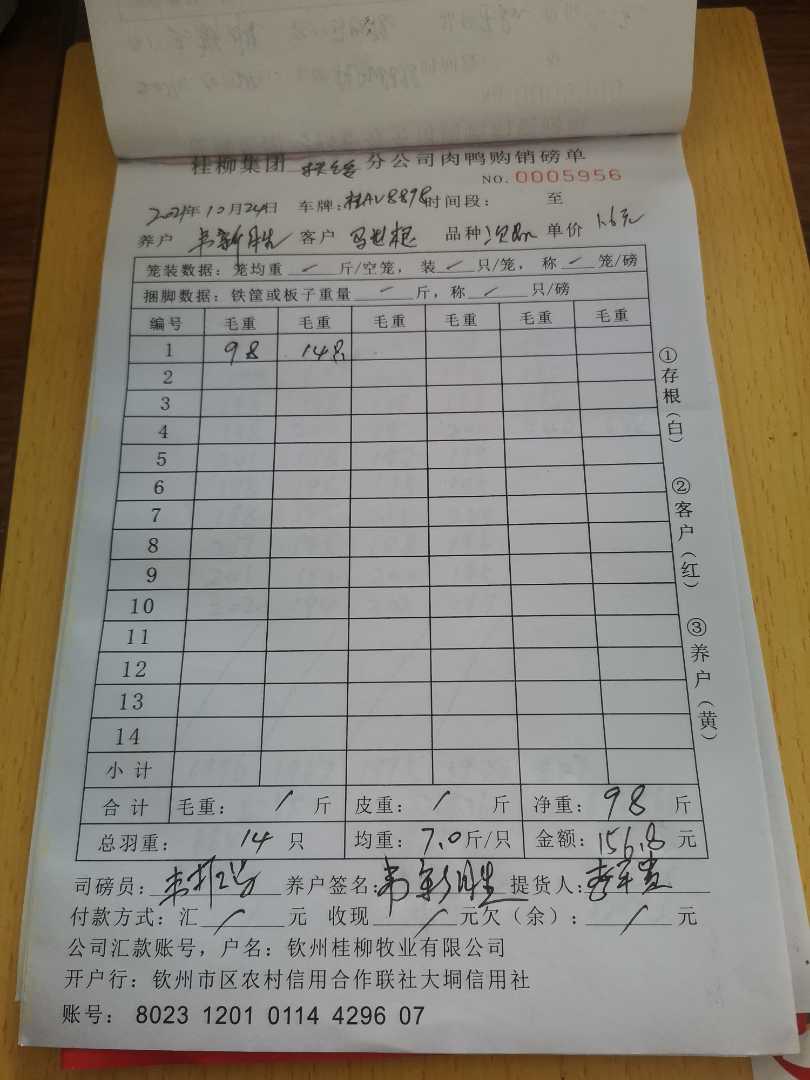 桂柳集团 分公司肉鸭购销磅单
NO. 0005956
2021年10月24日 车牌:桂AV8898 时间段: 至
养户 韦新胜 客户 马世根 品种 单价 1.6元
笼装数据: 笼均重 / 斤/空笼, 装 / 只/笼, 称 / 笼/磅
捆脚数据: 铁筐或板子重量 / 斤, 称 / 只/磅
编号 毛重 毛重 毛重 毛重 毛重 毛重
1 98 14只
2
3
4
5
6
7
8
9
10
11
12
13
14
小计
合计 毛重: / 斤 皮重: / 斤 净重: 98 斤
总羽重: 14 只 均重: 7.0 斤/只 金额: 156.8 元
司磅员: 养户签名: 韦新胜 提货人:
付款方式: 汇 / 元 收现 / 元欠(余): / 元
公司汇款账号, 户名: 钦州桂柳牧业有限公司
开户行: 钦州市区农村信用合作联社大垌信用社
账号: 8023 1201 0114 4296 07
①存根(白)
②客户(红)
③养户(黄)